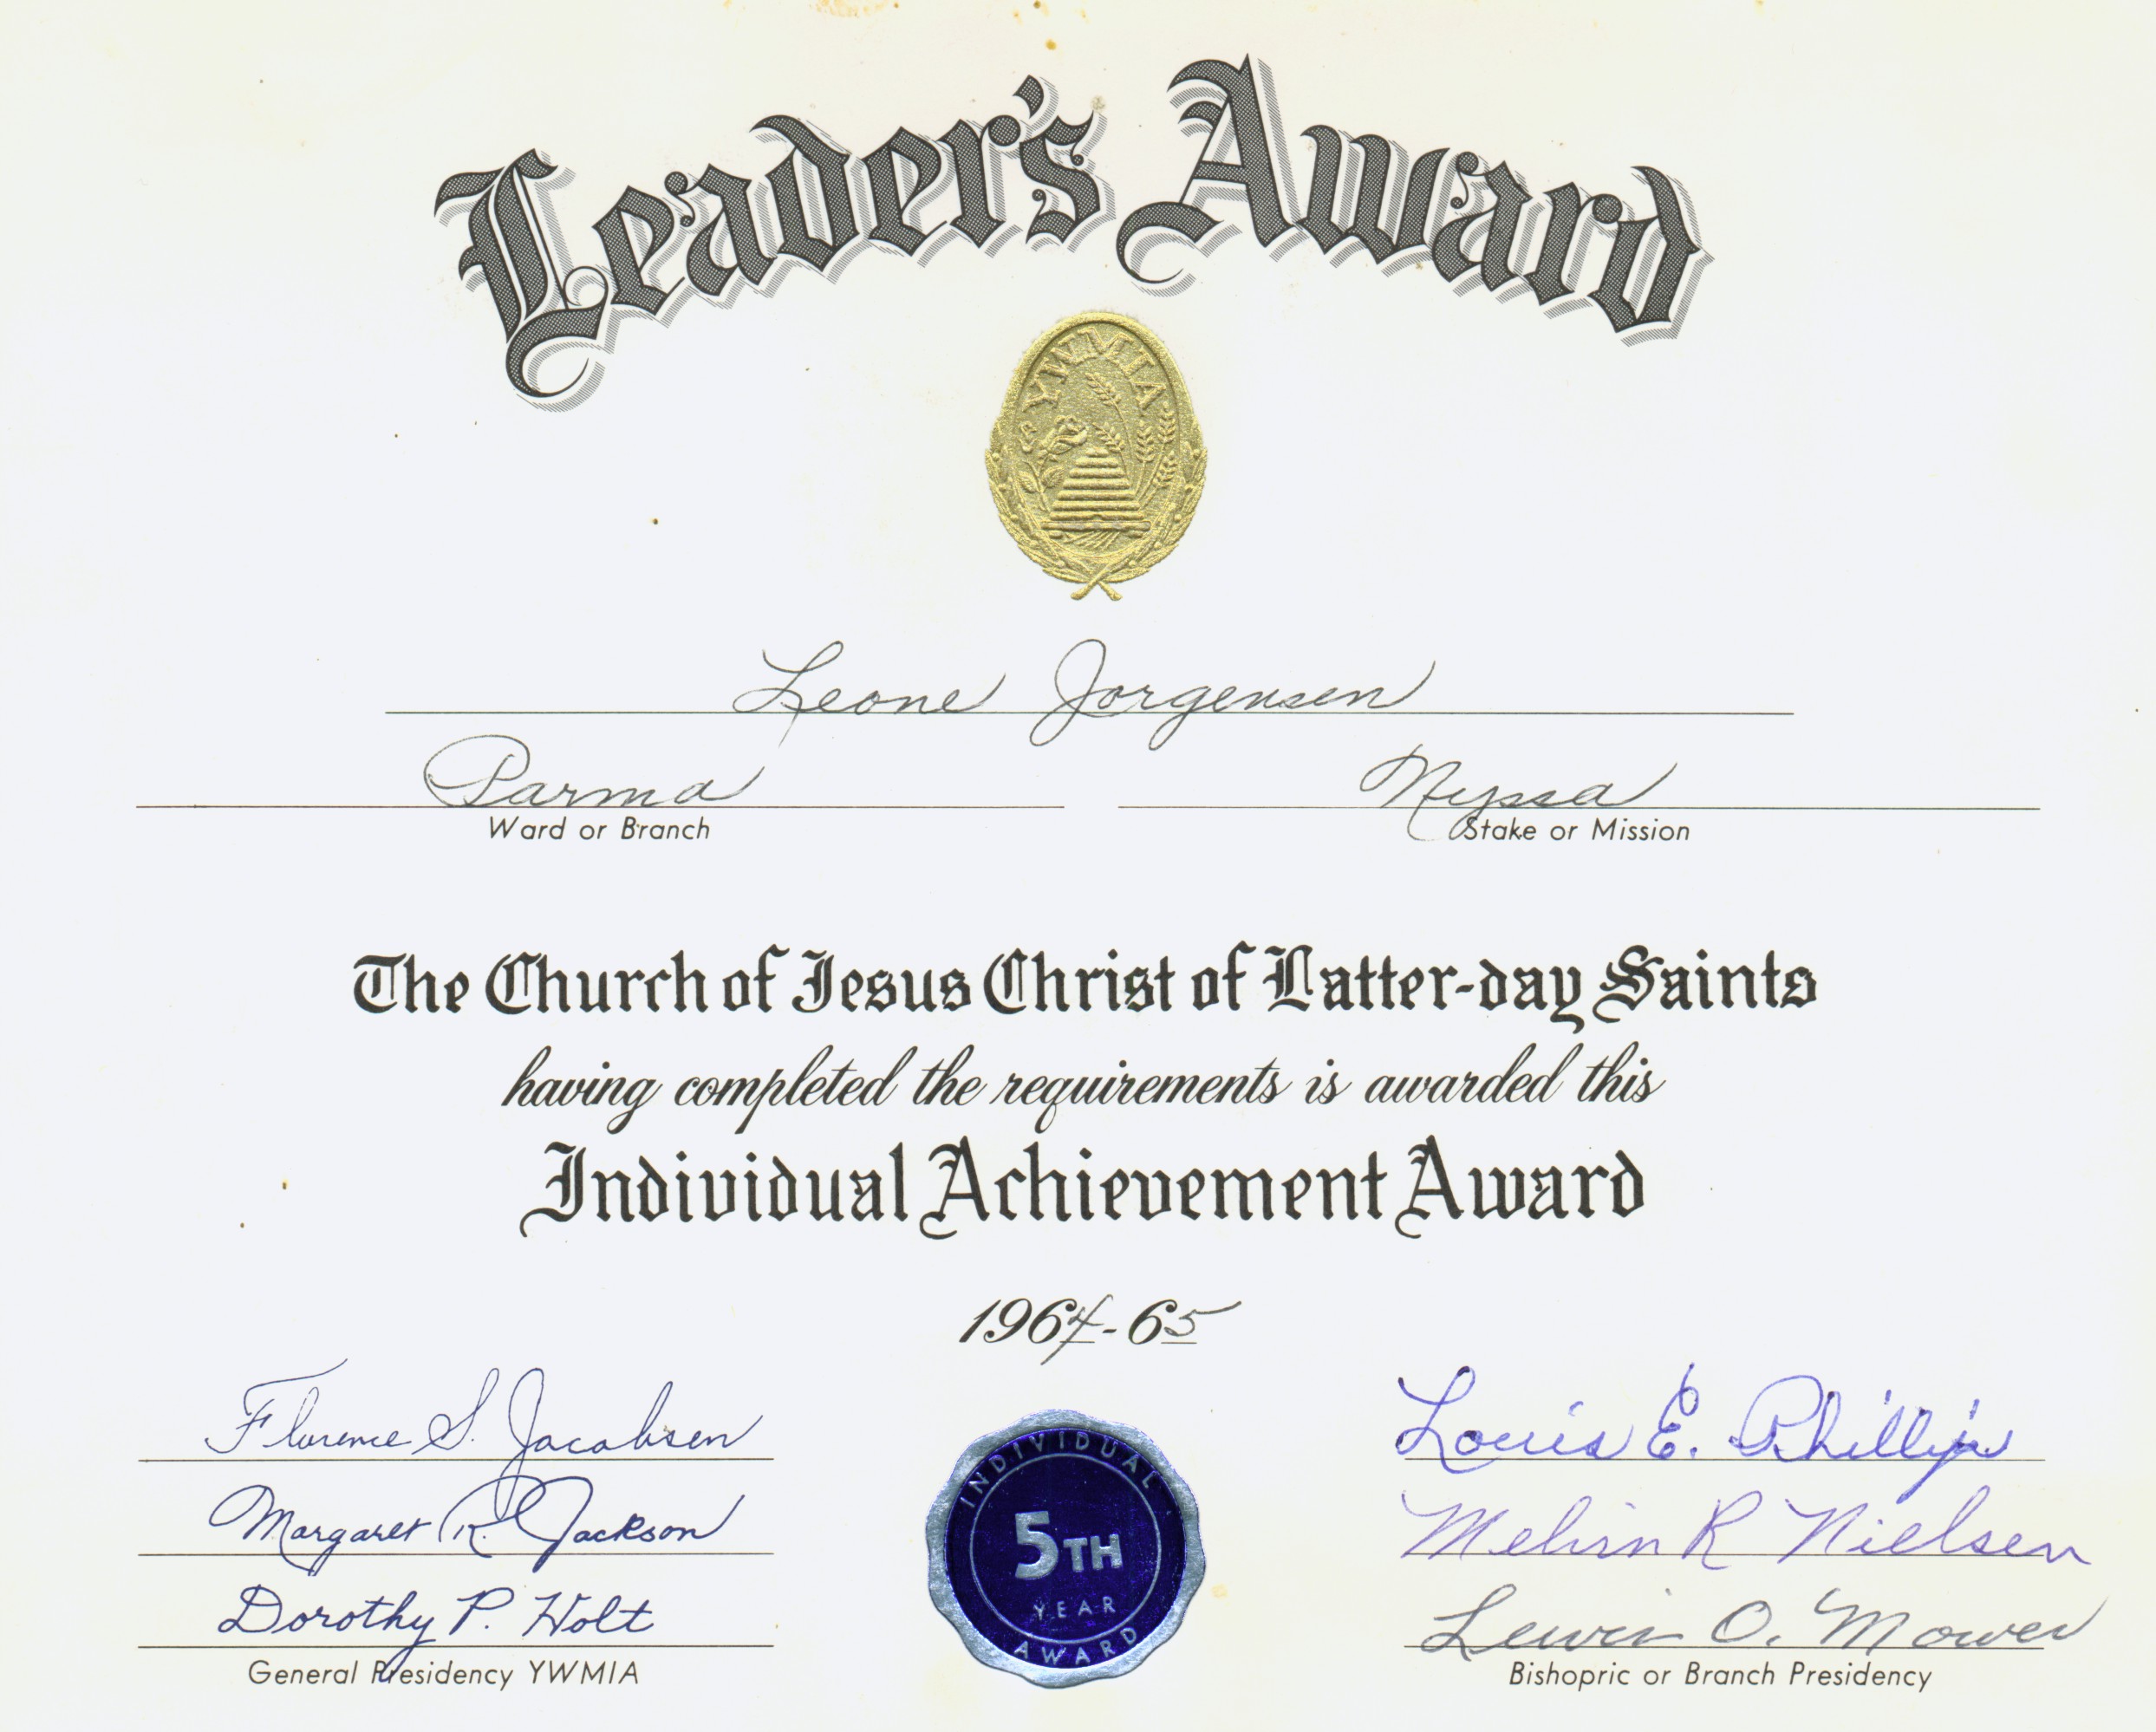 Leader's Award
YWMIA
Leone Jorgensen
Parma Nyssa
Ward or Branch Stake or Mission
The Church of Jesus Christ of Latter-day Saints
having completed the requirements is awarded this
Individual Achievement Award
1964-65
Florence S. Jacobsen
Margaret R. Jackson
Dorothy P. Holt
General Presidency YWMIA
INDIVIDUAL
5TH
YEAR
AWARD
Louis E. Phillips
Melvin R Nielsen
O. Mower
Bishopric or Branch Presidency